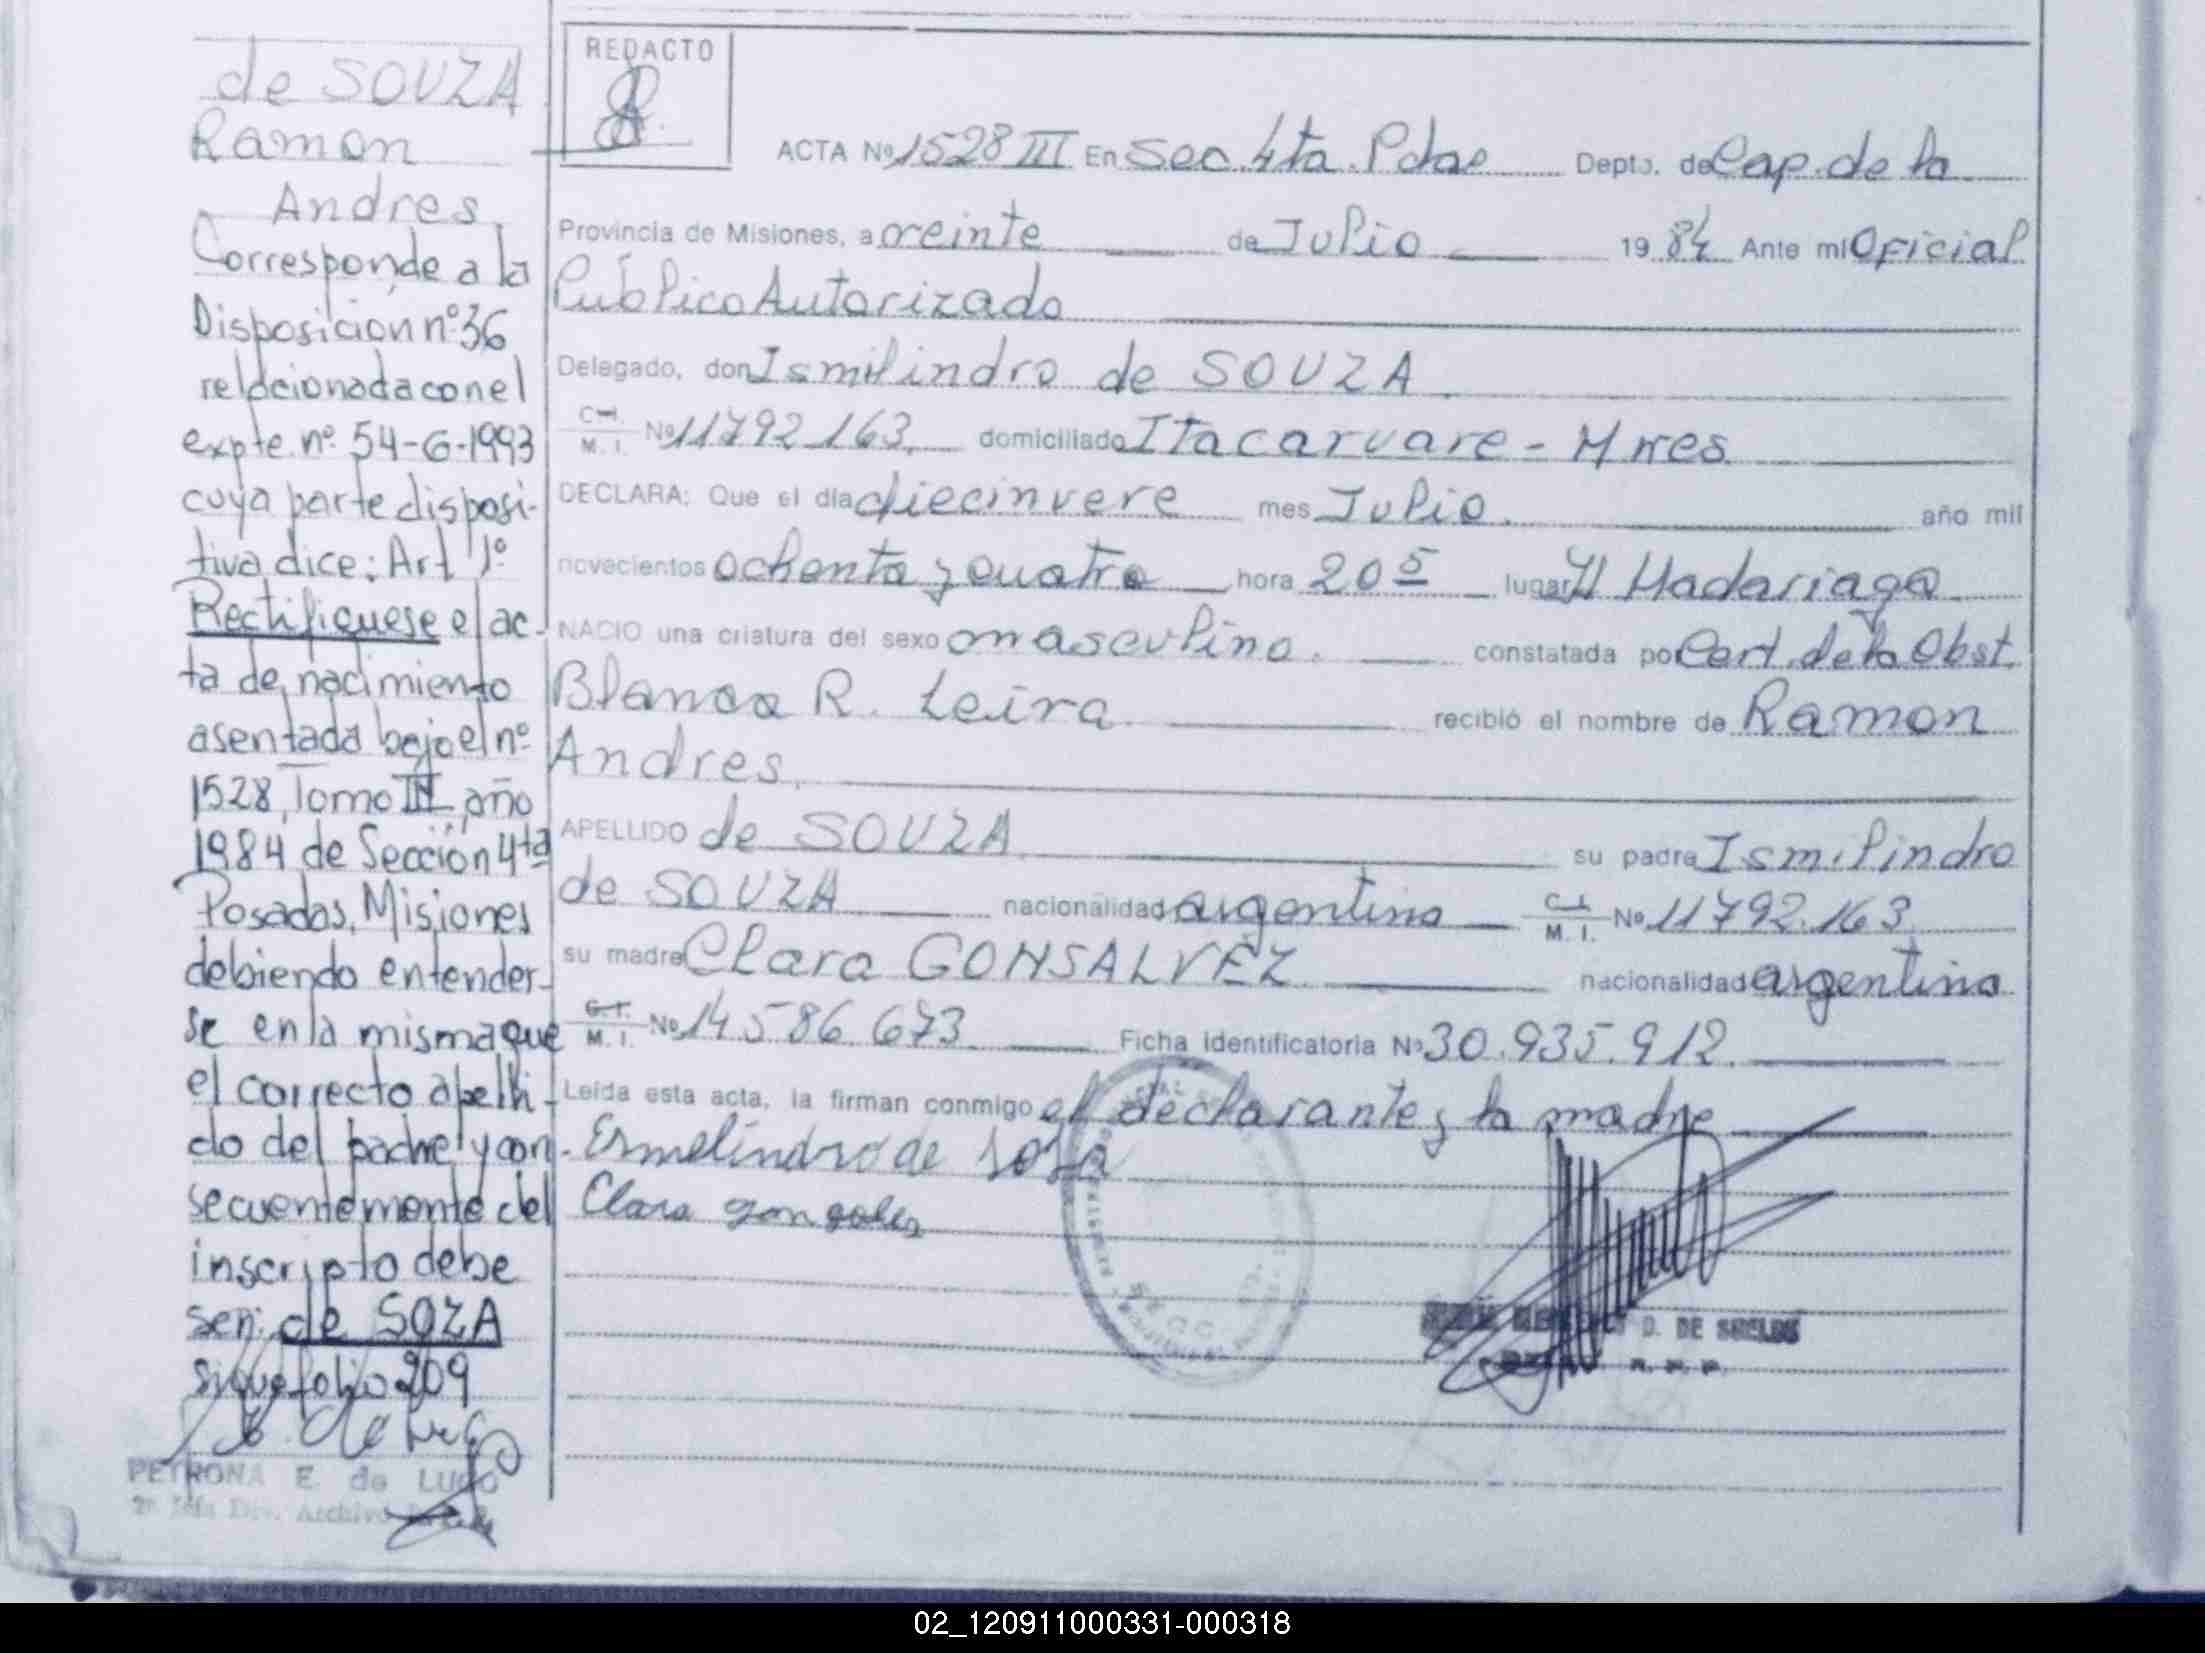 de SOUZA
Ramon
Andres
Corresponde a la
Disposición nº 36
relacionada con el
expte. nº 54-G-1993
cuya parte disposi-
tiva dice: Art 1º
Rectifiquese el ac-
ta de nacimiento
asentada bajo el nº
1528, Tomo III, año
1984 de Sección 4ta
Posadas, Misiones
debiendo entender-
se en la misma que
el correcto apelli-
do del padre y con-
secuentemente del
inscripto debe
ser: de SOZA
sigue folio 209
PETRONA E. de LUGO
2º Jefa Div. Archivo
REDACTO
ACTA Nº 1528 III En Sec. 4ta. Pdas Depto. de Cap. de la
Provincia de Misiones, a veinte de Julio 19 84 Ante mi Oficial
Público Autorizado
Delegado, don Ismilindro de SOUZA
C.I. M.I. Nº 11792.163. domiciliado Itacaruare - Mnes
DECLARA: Que el día diecinueve mes Julio. año mil
novecientos ochenta y cuatro hora 20 5 lugar H Madariaga
NACIO una criatura del sexo masculino. constatada por Cert. de la Obst.
Blanca R. Leira recibió el nombre de Ramon
Andres
APELLIDO de SOUZA su padre Ismilindro
de SOUZA nacionalidad argentina C.I. M.I. Nº 11792.163
su madre Clara GONSALVEZ nacionalidad argentina
C.I. M.I. Nº 14.586.673 Ficha identificatoria Nº 30.935.912.
Leída esta acta, la firman conmigo el declarante y la madre
Ermelindro de soza
Clara gonzales
D. DE SHELDS
02_120911000331-000318